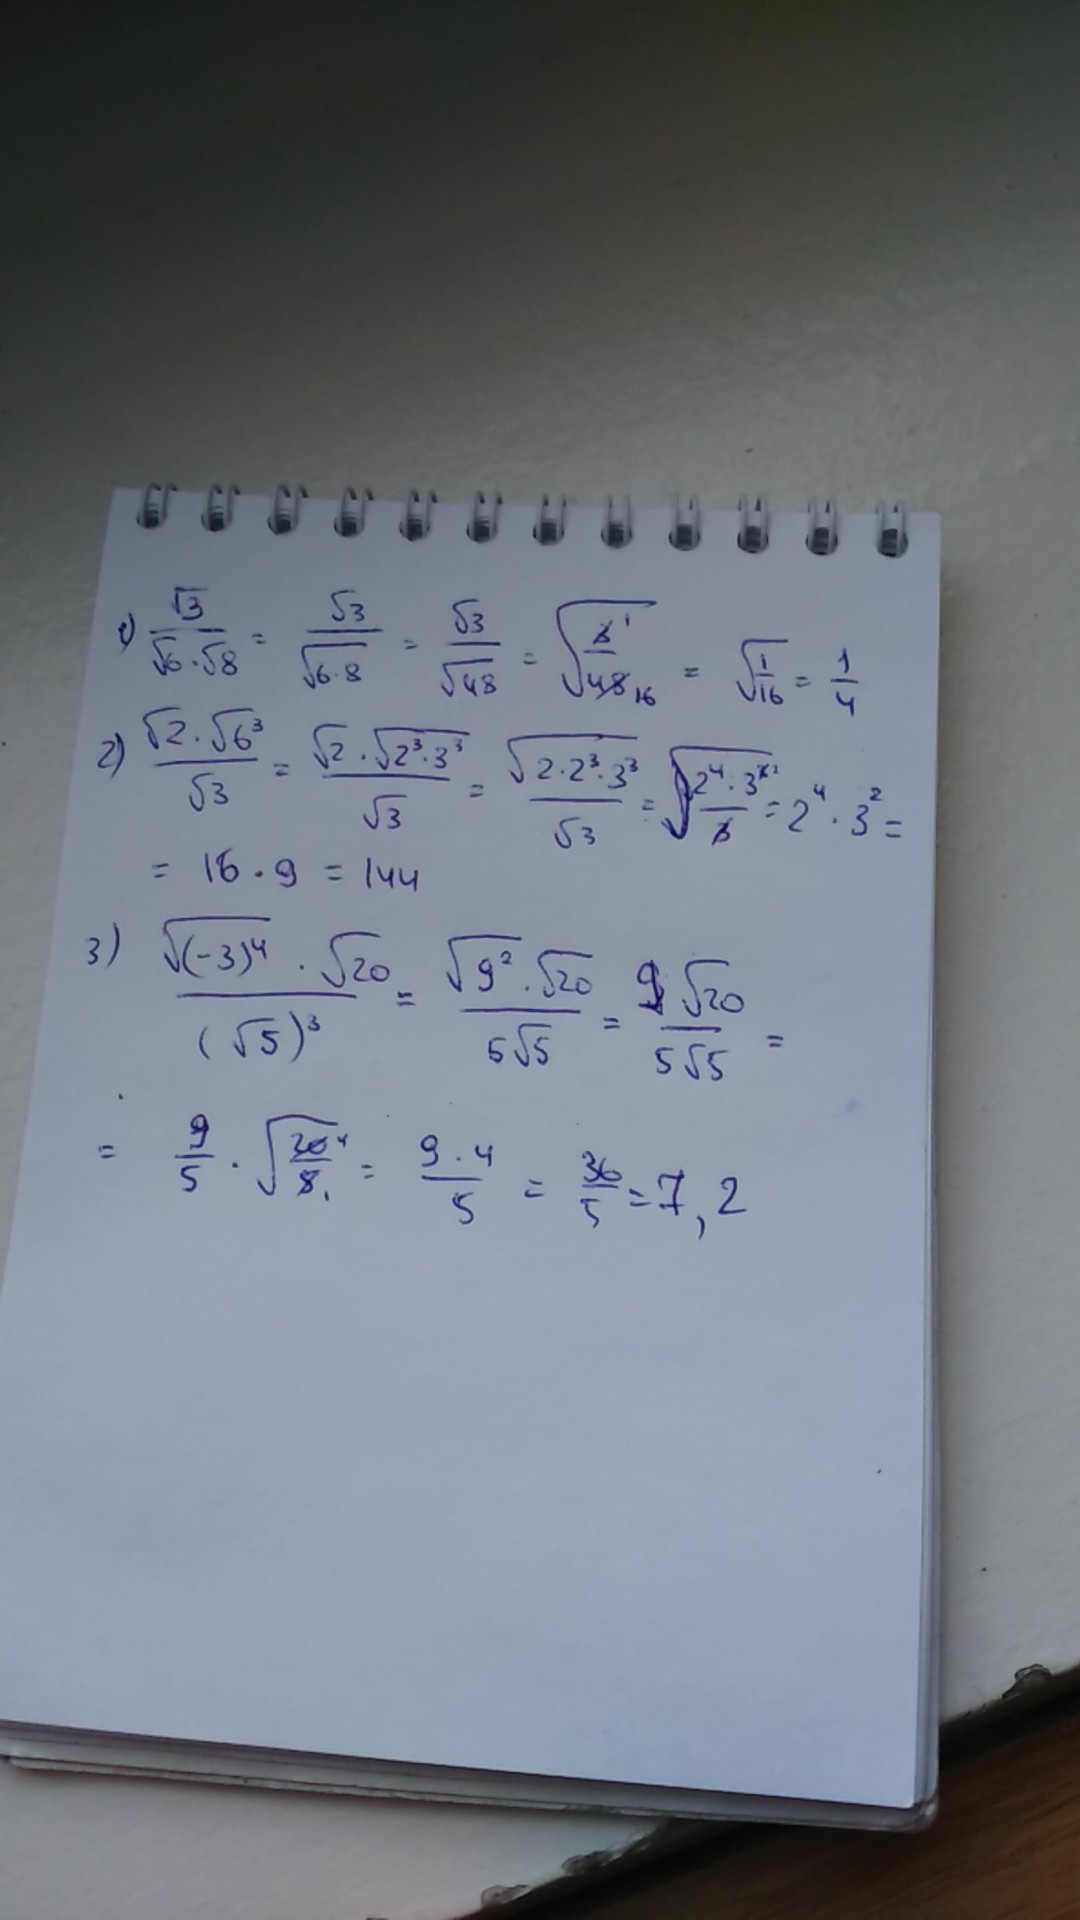 1) √3/(√6·√8) = √3/√(6·8) = √3/√48 = √(3 1/48 16) = √(1/16) = 1/4
2) (√2·√6³)/√3 = (√2·√(2³·3³))/√3 = √(2·2³·3³)/√3 = √(2⁴·3³ ²/3) = 2⁴·3² =
= 16·9 = 144
3) (√(-3)⁴·√20)/(√5)³ = (√9²·√20)/(5√5) = 9√20/(5√5) =
= 9/5·√(20 4/5 1) = (9·4)/5 = 36/5 = 7,2